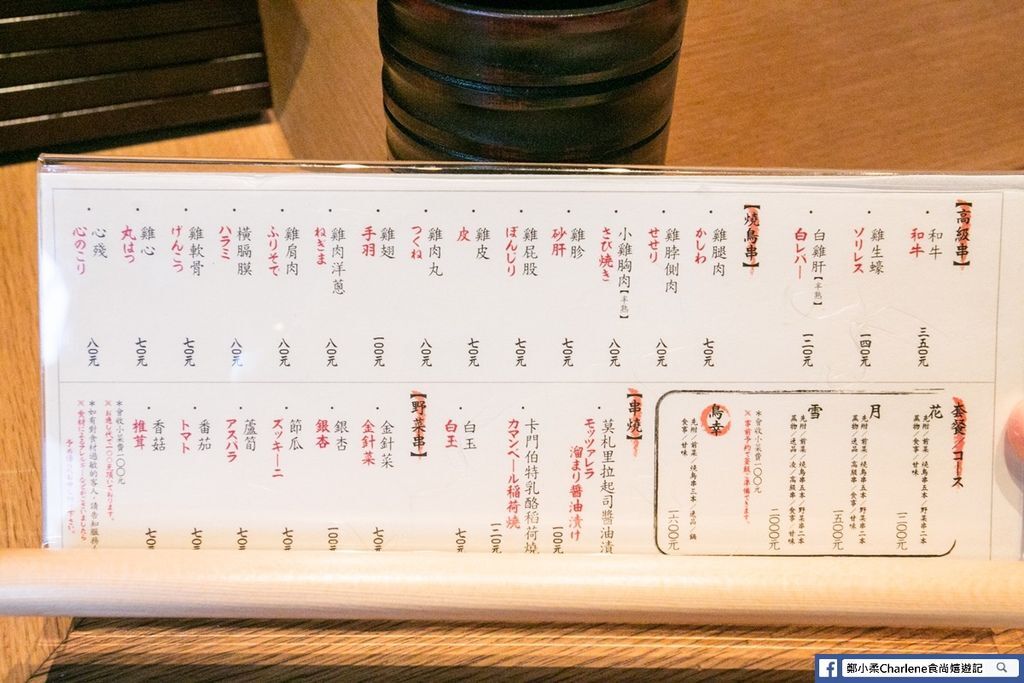 【高級串】
和牛
和牛
三五0元
雞生蠔
ソリレス
一四0元
白雞肝【半熟】
白レバー
一二0元
【燒鳥串】
雞腿肉
かしわ
七0元
雞脖側肉
せせり
八0元
小雞胸肉【半熟】
さび焼き
八0元
雞胗
砂肝
七0元
雞屁股
ぼんじり
七0元
雞皮
皮
七0元
雞肉丸
つくね
八0元
雞翅
手羽
一00元
雞肉洋蔥
ねぎま
八0元
雞肩肉
ふりそで
八0元
橫膈膜
ハラミ
八0元
雞軟骨
げんこう
七0元
雞心
丸はつ
七0元
心殘
心のこり
八0元
套餐／コース
花
先附／前菜／燒鳥串五本／野菜串二本
蒸物／逸品／食事／甘味
一二00元
月
先附／前菜／燒鳥串五本／野菜串二本
蒸物／逸品／高級串／食事／甘味
一五00元
雪
先附／前菜／燒鳥串五本／野菜串二本
蒸物／逸品／凌／高級串／食事／甘味
二000元
＊會收小菜費一00元
鳥幸
先附／前菜／燒鳥串三本／逸品／鍋
食事／甘味
一六00元
【串燒】
莫札里拉起司醬油漬
モッツァレラ
溜まり醤油漬け
一00元
卡門伯特乳酪稻荷燒
カマンベール稲荷燒
一二0元
白玉
白玉
七0元
【野菜串】
金針菜
金針菜
七0元
銀杏
銀杏
一00元
節瓜
ズッキーニ
七0元
蘆筍
アスパラ
七0元
番茄
トマト
七0元
香菇
椎茸
七0元
＊會收小菜費一00元
※お通し代で一00元頂いております。
＊如有對食材過敏的客人，請告知服務
鄭小柔Charlene食尚嬉遊記